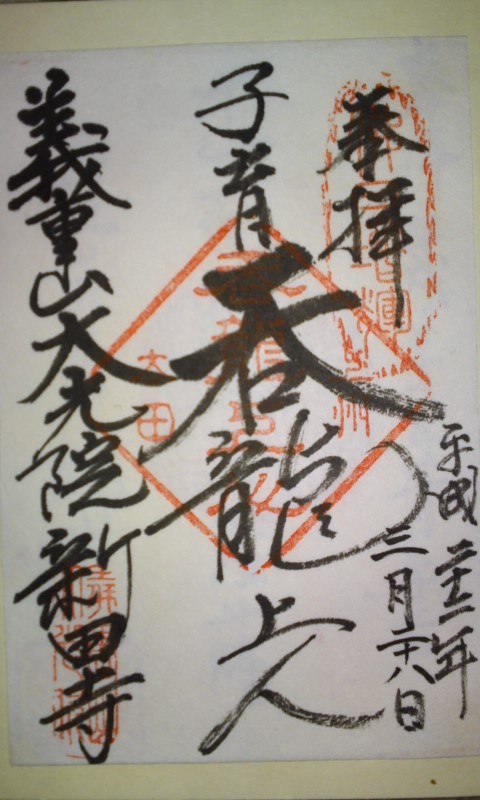 奉拝
平成二十二年
三月二十八日
子育
呑龍上人
太田
義重山大光院新田寺